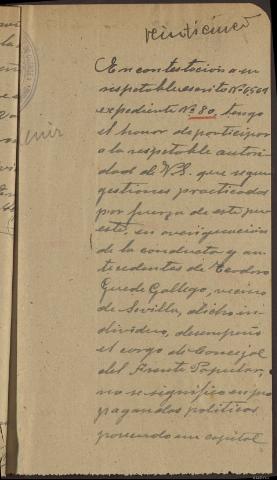 veinticinco
En contestación a su
respetable escrito Nº 6561
expediente Nº 80, tengo
el honor de participar
a la respetable autori-
dad de V.S. que segun
gestiones practicadas
por fuerza de este pue
esto, en averiguación
de la conducta y an-
tecedentes de Teodoro
Gallego, vecino
de Sevilla, dicho in-
dividuo, desempeñó
el cargo de Concejal
del Frente Popular,
no se significó en pro
pagandas politicas
poseyendo un capital